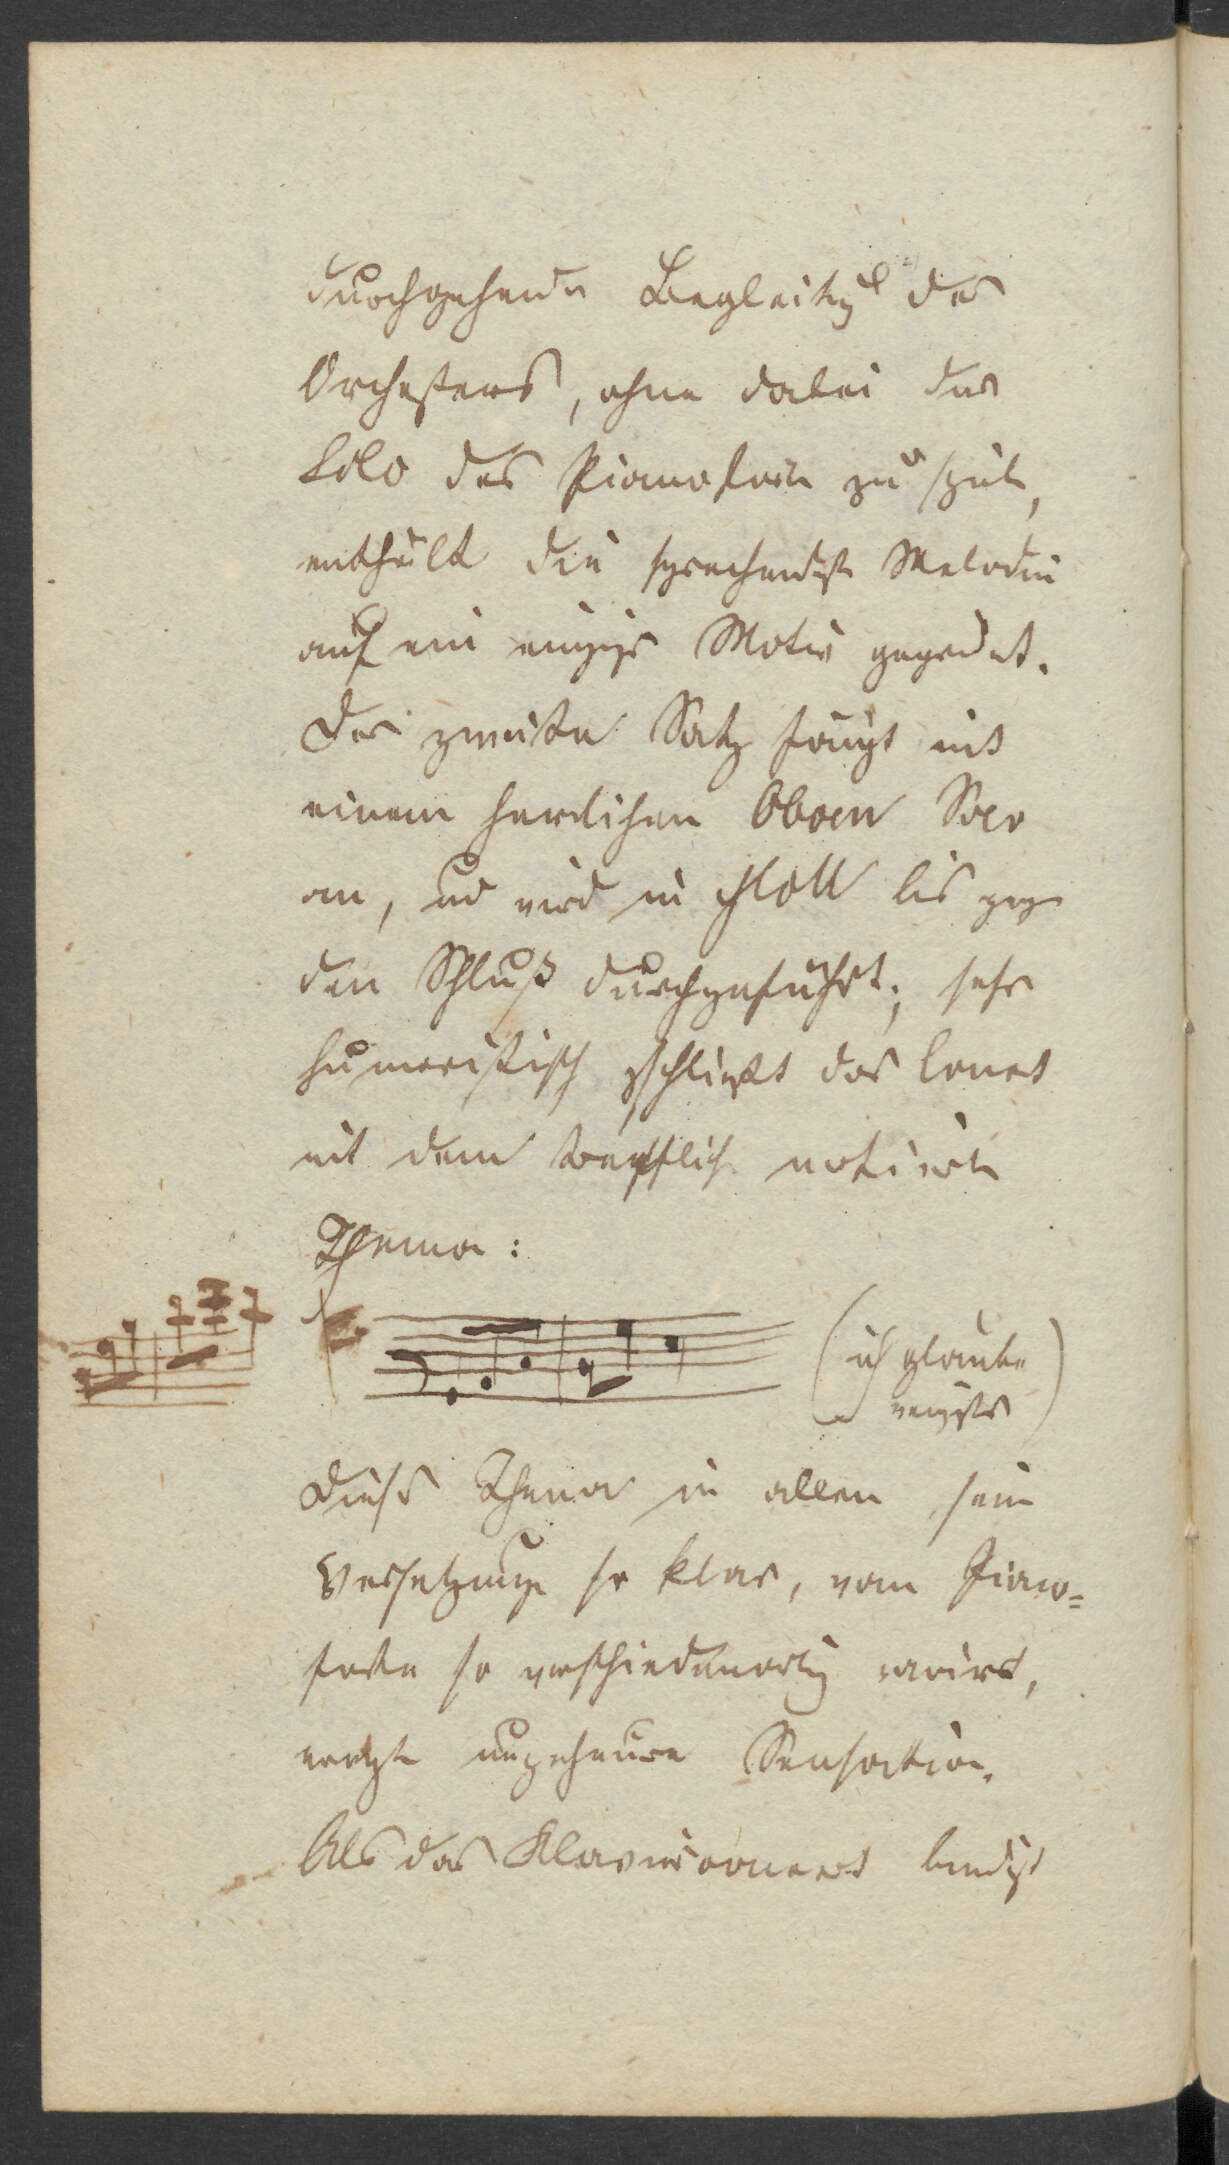 durchgehende Begleitg des
Orchesters, ohne dabei das
Solo des Pianoforte zu
enthält die sprechendste Melodie
auf ein einziges Motiv gegründet.
Der zweite Satz fängt mit
einem herrlichen Oboen Solo
an, und wird in Moll bis gegen
den Schluß durchgeführt; sehr
humoristisch schließt das Concert
mit dem trefflich notirten
Thema:
(ich glaube
wenigstens)
Dieses Thema in allen seinen
Versetzungen so klar, vom Piano=
forte so verschiedenartig variirt,
erregte ungeheure Sensation.
Als das Klavierconcert beendigt